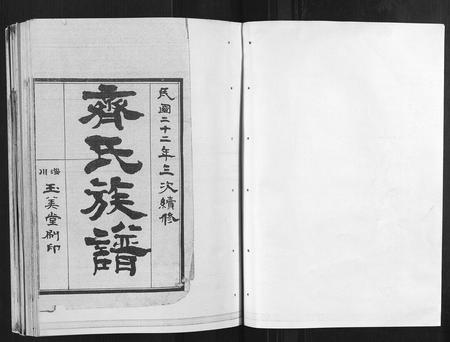 民國二十二年三次續修
齊氏族譜
淄川
玉美堂刷印